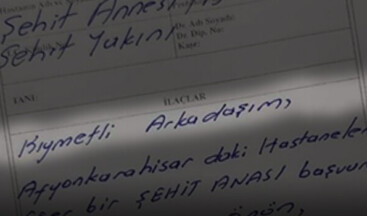 Şehit Annesi
Şehit Yakını
Dr. Adı Soyadı:
Dr. Dip. No:
Kaşe:
TANI
İLAÇLAR
Kıymetli Arkadaşım,
Afyonkarahisar daki Hastaneler
bir ŞEHİT ANASI başvur